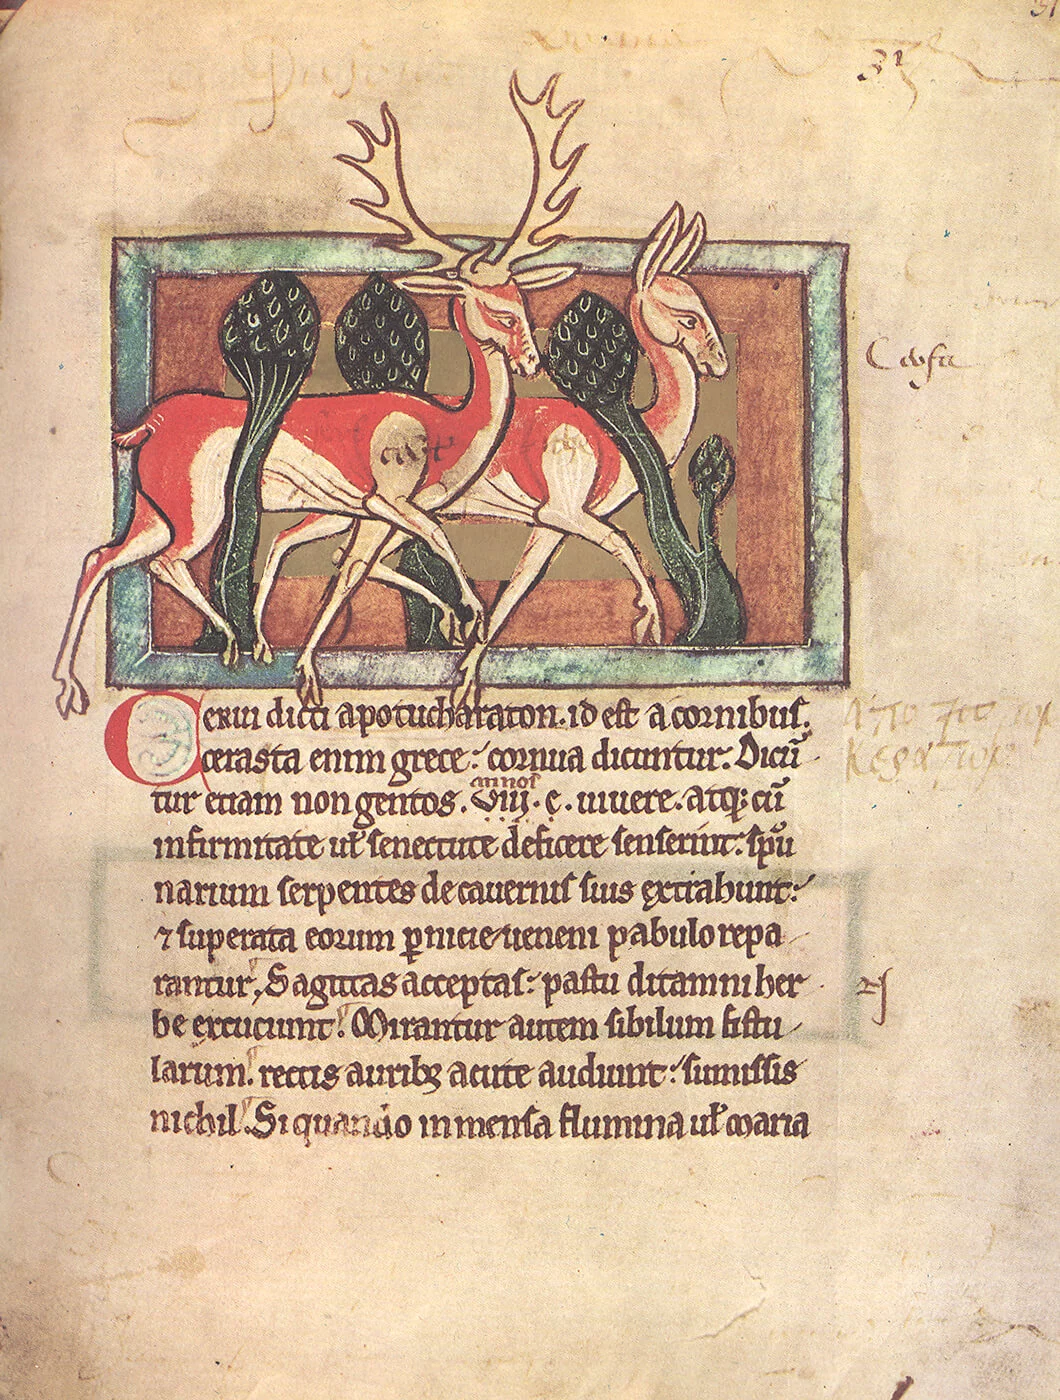 31
Cerui dicti apotucharaton. id est a cornibus.
cerasta enim grece: cornua dicuntur. Dicū
tur etiam nongentos. annos viij. c. uiuere. atq; cū
infirmitate uƚ senectute deficere senserint: spū
narium serpentes de cauernis suis extrahunt:
⁊ superata eorum ꝑnicie ueneni pabulo repa
rantur, Sagittas acceptas: pastu ditamni her
be excuciunt. Mirantur autem sibilum fistu
larum. rectis aurib; acute audiunt: sumissis
nichil. Si quando inmensa flumina uƚ maria